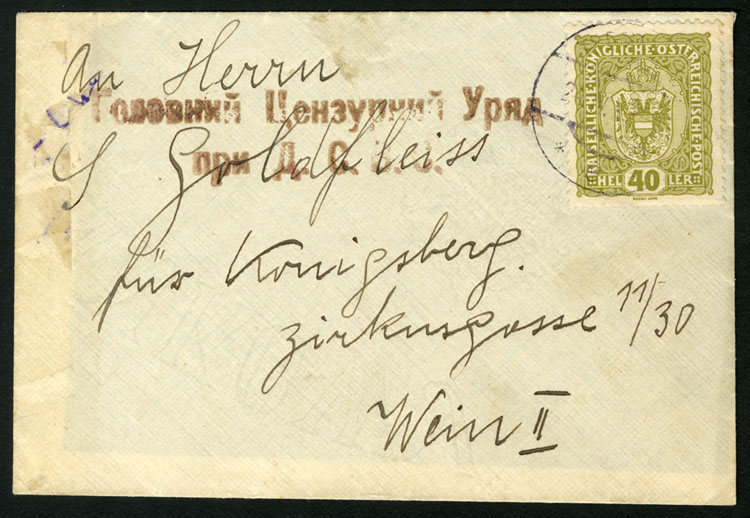 An Herrn
Головний Цензурний Уряд
при Д. С. В. У.
S Goldfleiss
für Königsberg.
Zirkusgasse 11/30
Wein II
KAISERLICHE KÖNIGLICHE ÖSTERREICHISCHE POST
HELLER
40